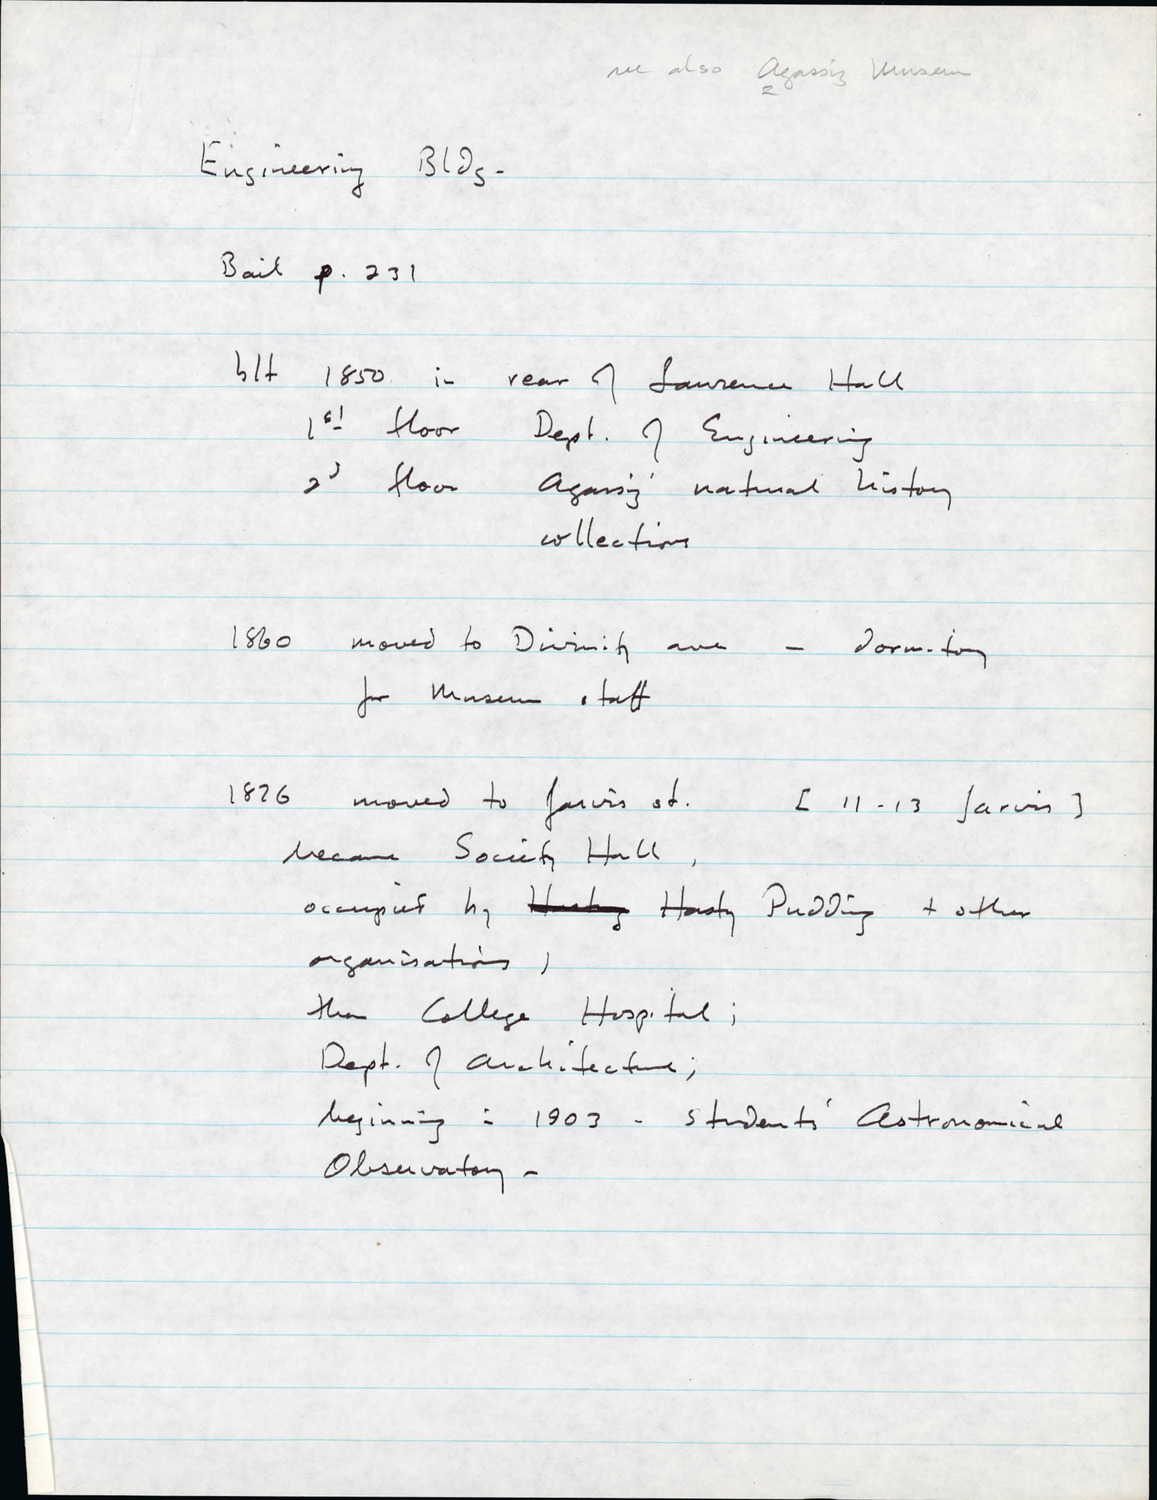 see also Agassiz Museum
Engineering Bldg.
Bail p. 231
blt 1850 in rear of Lawrence Hall
1st floor Dept. of Engineering
2d floor Agassiz' natural history
collections
1860 moved to Divinity ave - dormitory
for Museum staff
1876 moved to Jarvis st. [11-13 Jarvis]
became Society Hall,
occupied by Hasty Pudding + other
organisations;
then College Hospital;
Dept. of Architecture;
beginning in 1903 - students' Astronomical
Observatory -